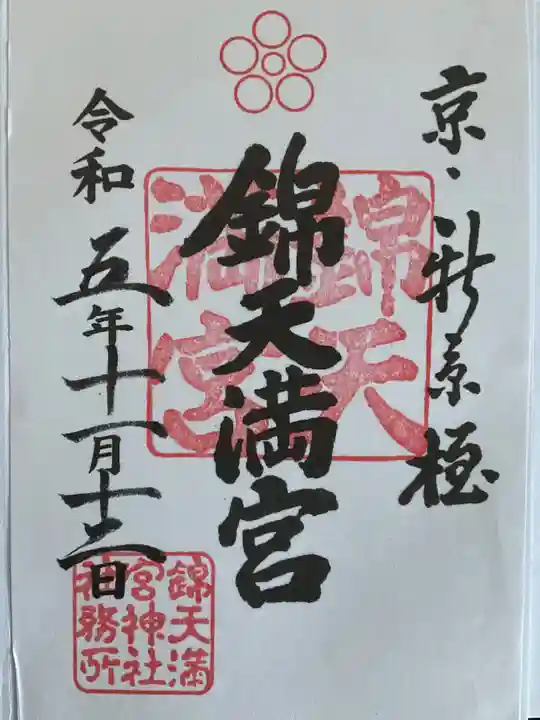 京・新京極
錦天満宮
錦天満宮
令和五年十一月十二日
錦天満
宮神社
社務所